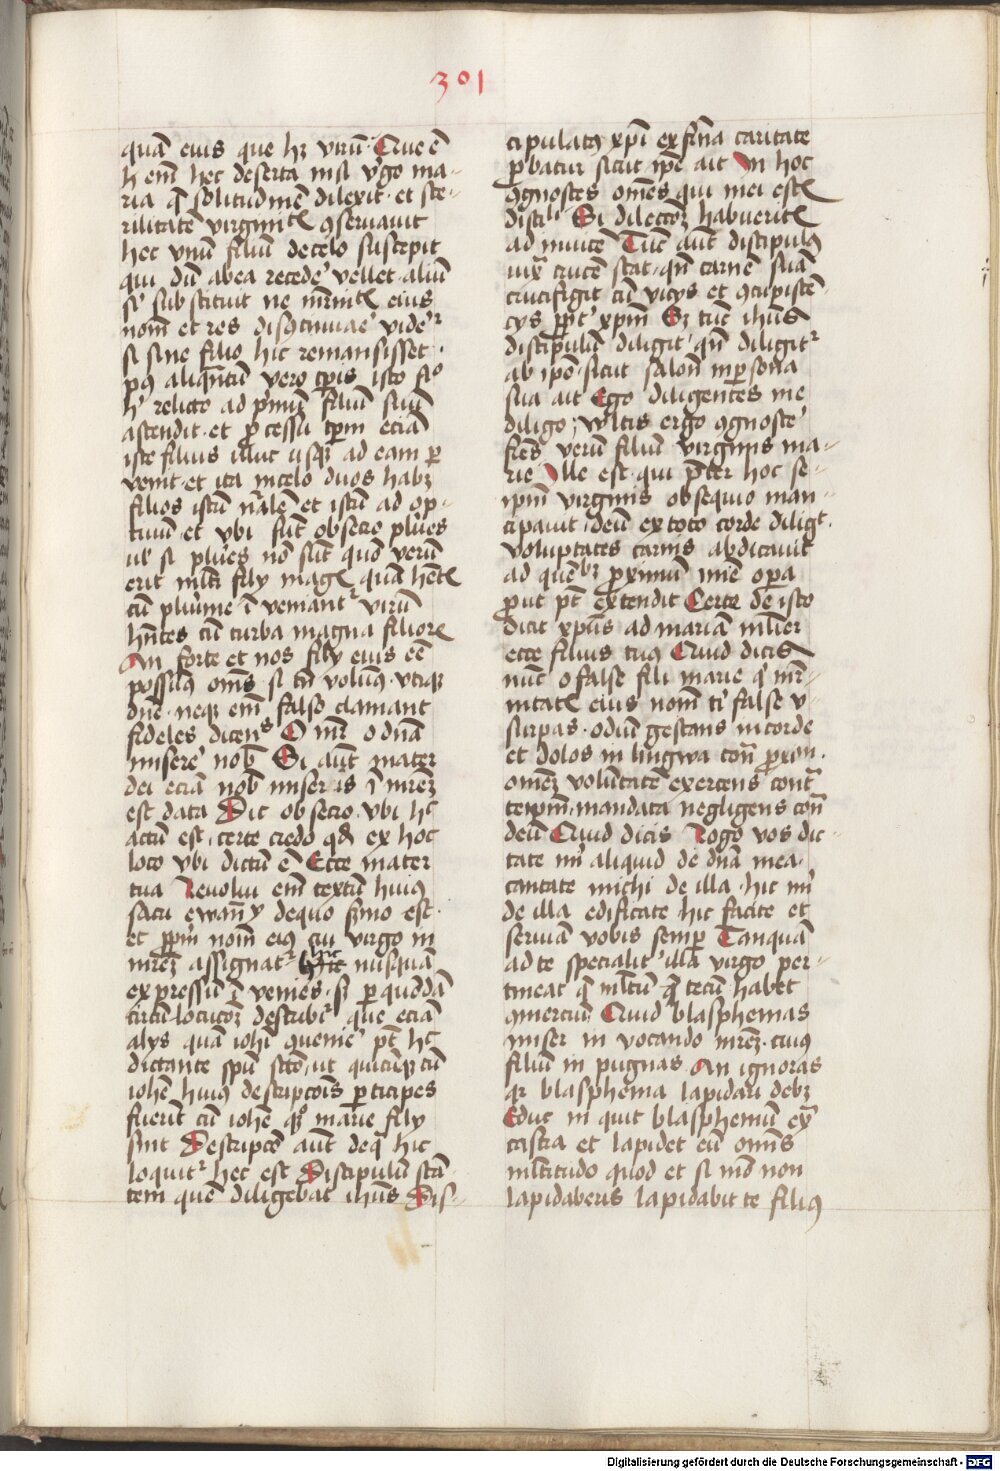 301
quā eius que hȝ virū Que ē
h̄ em̄ hec deserta nisi v'go ma-
ria q̄ solitudinē dilexit · et ste-
rilitatē virginitꝭ ꝯseruauit
hec vnū filiū de celo suscepit
qui dū ab ea recede' vellet aliū
s' substituit ne m̄rnitꝭ eius
nom̄ et res disꝯtinuae' vide'r
si sine filio hic remansisset ·
pꝰ aliqn̄tū vero tp̄is isto fi°
h' relicto ad p'mū filiū suū
ascendit · et ꝓcessu tp̄m eciā
iste filius illuc usqꝫ ad eam ꝑ
venit · et ita in celo duos habȝ
filios istū n̄alē et istū ad op-
tiuū · et vbi sūt obsecro plu'es
ul' si plu'es nō sūt quō verū
erit ml'ti filÿ magꝭ quā hētꝭ
cū plu'me ī veniant'r virū
hn̄tes cū turba magna filiorꝭ
An forte et nos filÿ eius eē
possumꝰ om̄s si tn̄ volumꝰ vtiqꝫ
dn̄e · neqꝫ em̄ false clamant
fideles dicen's O mr̄ o dn̄a
misere' nob̄ Si aūt mater
dei eciā nob̄ miseris ī mr̄eȝ
est data Dic obsecro vbi hͨ
actū est · certe credo qd̄ ex hoc
loco vbi dictū ē Ecce mater
tua Reuolui em̄ textū huiꝰ
sacri ewan̄ÿ de quo s'mo est ·
et pp̄m nom̄ eiꝰ cui virgo in
mr̄eȝ assignat'r nusquā
expressū ī venies · sȝ ꝑ quēdā
circūlocucōȝ describi'r que eciā
alÿs quā iohī ꝯuenie' pt̄ hͨ
dictante spū scō · ut quicūqꝫ cū
iohē huiꝰ descripcōis ꝑticipes
fuerīt cū iohē qͦꝫ marie filÿ
sint Descripcō aūt de qͣ hic
loquit'r hec est Discipulū stā-
tem quē diligebat ih̄us Dis-
cipulatꝰ xp̄i ex sīn̄a caritate
ꝓbatur sicut ip̄e ait In hoc
ꝯgnoscēs om̄es qui mei estꝭ
disci'li Si dilectōȝ habueritꝭ
ad inuicē Tūc aūt discipulꝰ
iux̄ crucē stat · qn̄ carnē suā
crucifigit cū vicÿs et ꝯcupiscē-
cÿs ꝓpt' xp̄m Sȝ tūc ih̄us
discipulū diligit · qn̄ diligit'r
ab ip̄o · sicut salōn in ꝑsona
sua ait Ego diligentes me
diligo ; wltis ergo ꝯgnosce'
fr̄es verū filiū virginis ma-
rie Ille est · qui p̄ter hoc se-
ip̄m virginis obsequio man-
cipauit / deū ex toto corde diligt ·
voluptates carnis abdicauit
ad quēlibȝ ꝓximū im̄e opa
ꝓut pt̄ extendit Certe de isto
dicit xp̄us ad mariā ml'ier
ecce filius tuꝰ Quid dicis
nūc o false fili marie q' mr̄-
nitatꝭ eius nom̄ ti' false v-
surpas · odiū gestans in corde
et dolos in lingwa con̄ ꝓxim ·
omēȝ volūtatē exercens contͣ
teip̄m · mandata negligens con̄
deū Quid dicis Rogo vos dic-
tate m' aliquid de dn̄a mea ·
cantate michi de illa · hic m'
de illa edificate hic facite et
seruiā vobis semꝑ Tanquā
ad te specialit' illa virgo per-
tineat q̄ ml'tū qͣ tecū habet
ꝯmerciū Quid blasphemas
miser in vocando mr̄eȝ · cuiꝰ
filiū in pugnas An ignoras
qr blasphema lapidari debȝ
Educ in quit blasphemū exͣ
castra et lapidet eū om̄is
ml'titudo quod et si m̄d non
lapidaberis lapidabit te filiꝰ
Digitalisierung gefördert durch die Deutsche Forschungsgemeinschaft - DFG